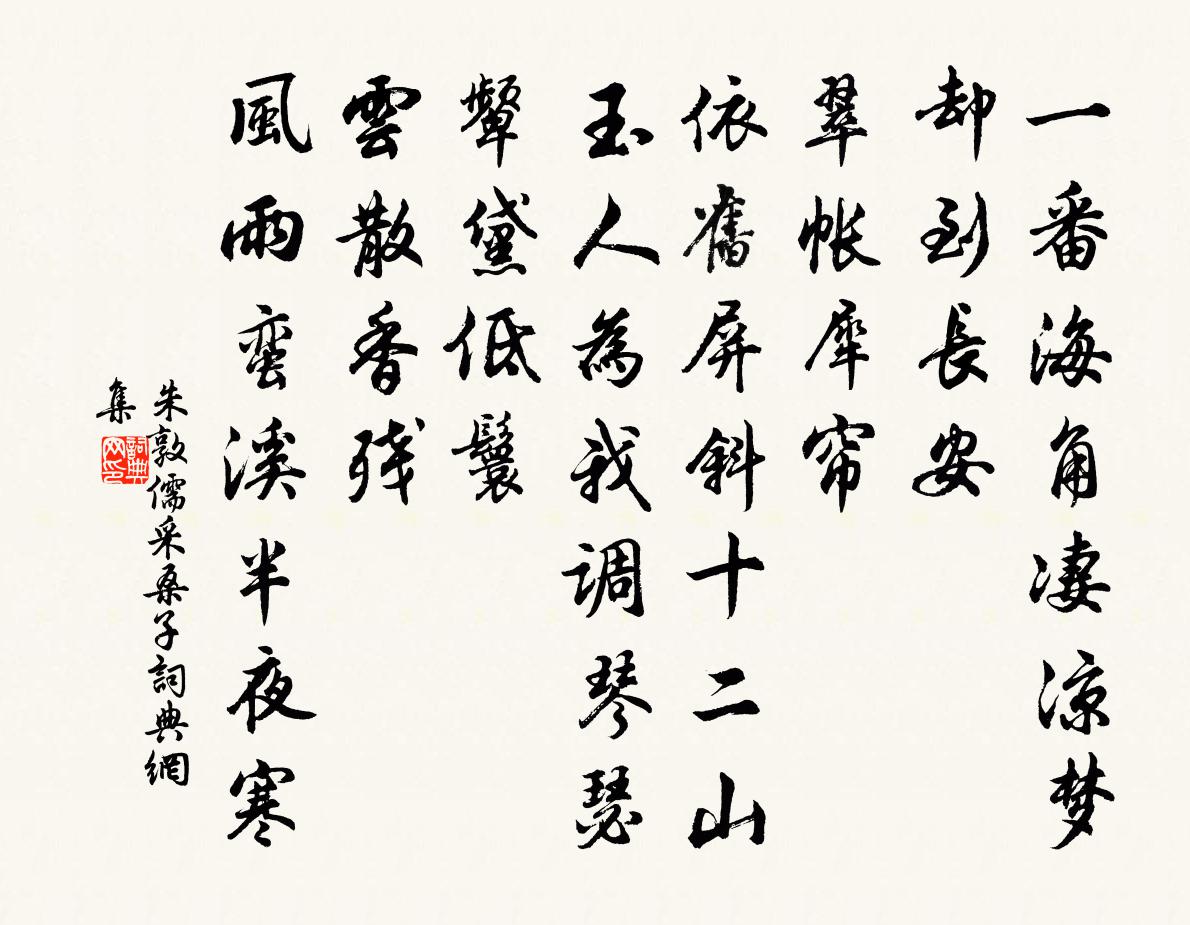 一番海角凄涼梦
却到長安
翠帳犀帘
依舊屏斜十二山
玉人為我調琴瑟
顰黛低鬟
雲散香残
風雨蛮溪半夜寒
朱敦儒采桑子詞典網
集
詞典網印